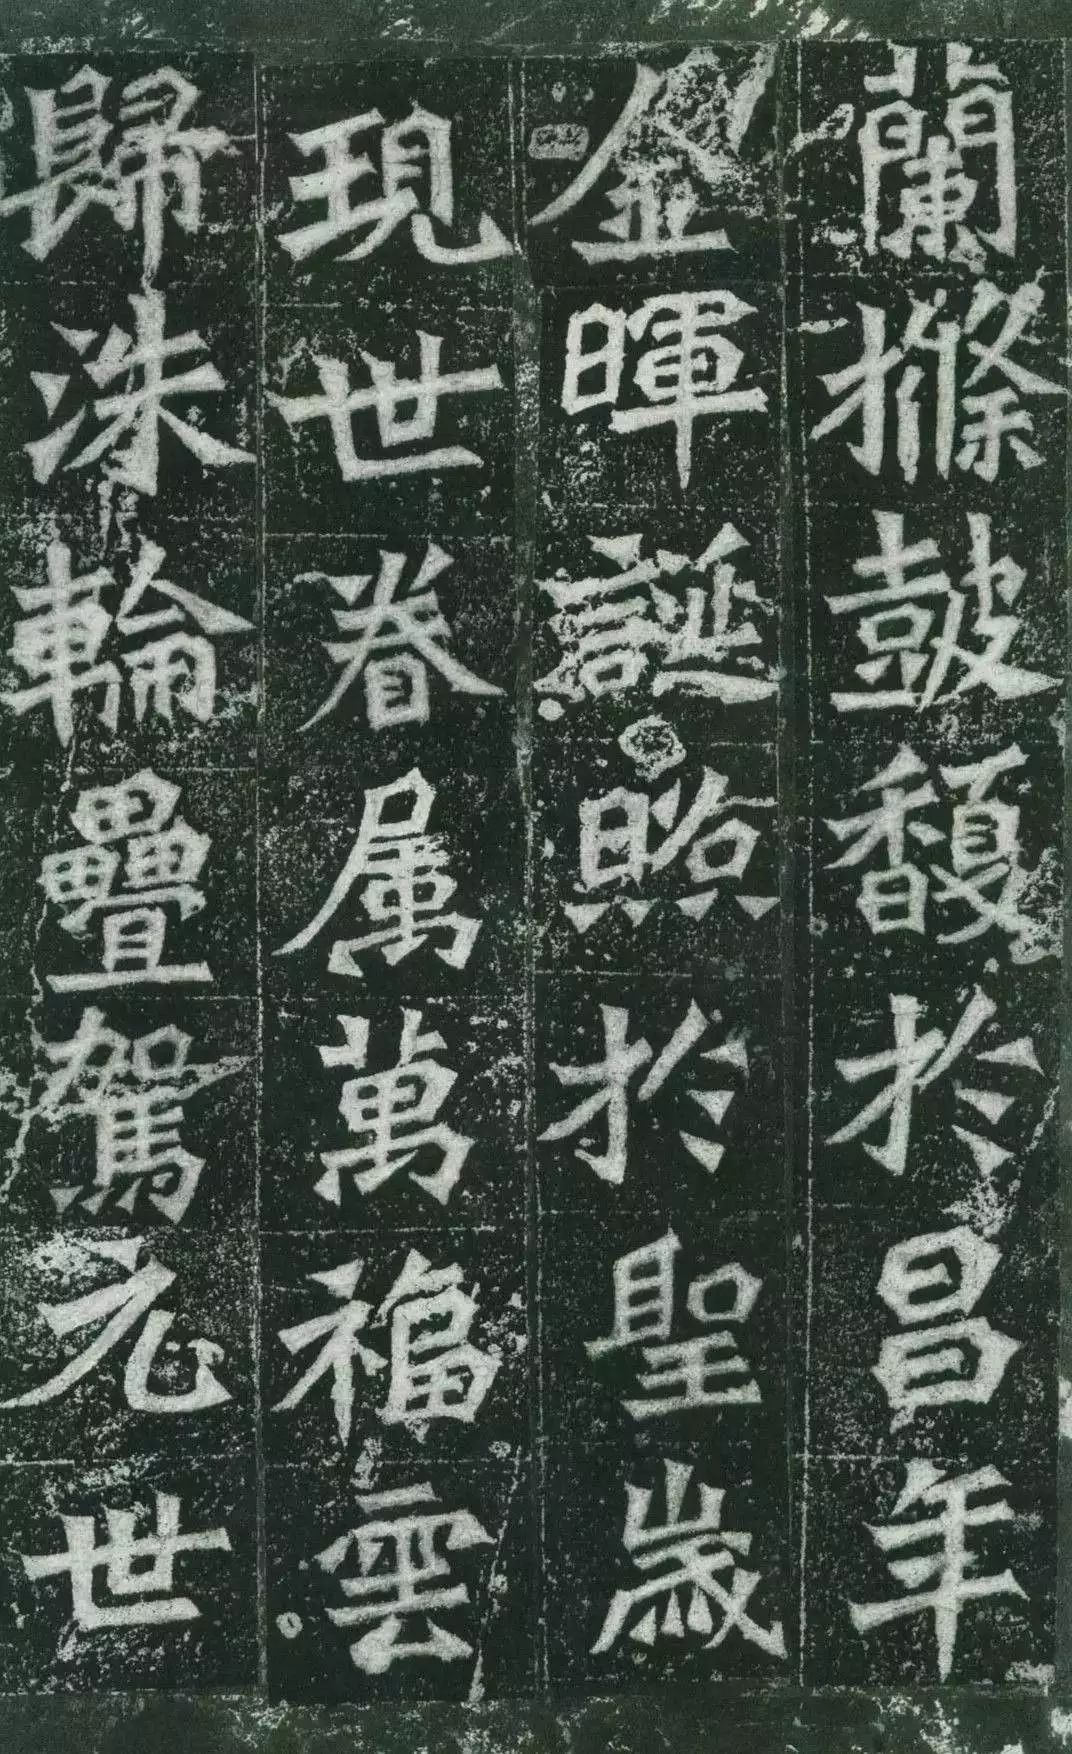 蘭㯌鼓馥於昌年
金暉誕照於聖歳
現世眷属萬福雲
歸洙輪疊駕元世